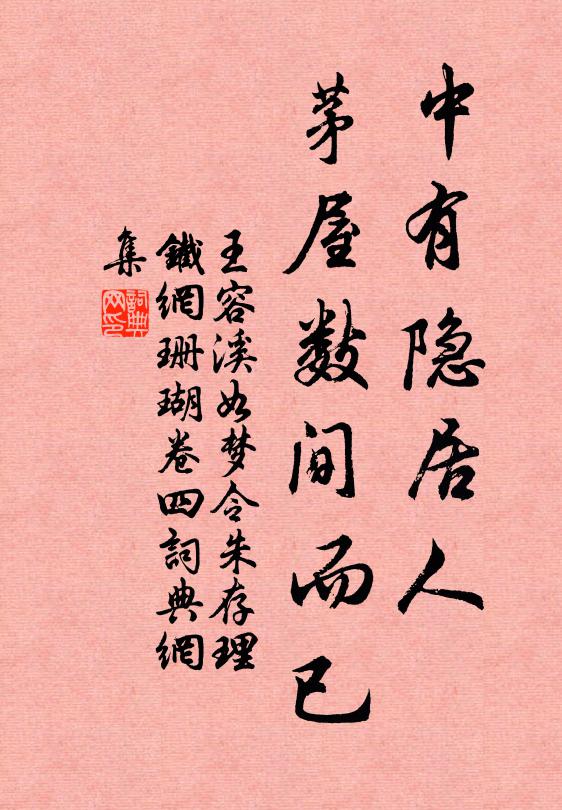 中有隐居人
茅屋数间而已
王容溪如梦令朱存理
鐵網珊瑚卷四詞典網
集
詞典
网印